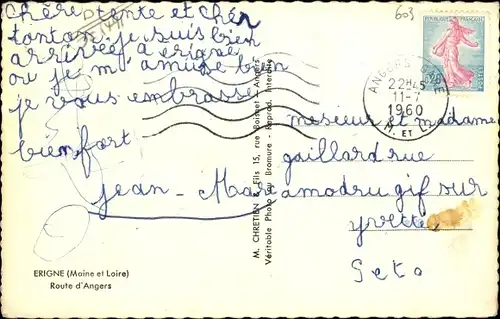 chère tente et chèr
tonton je suis bien
arrivée a erigne
ou je m'amuse bien
je vous embrasse
bien fort
jean-Marc
ERIGNE (Maine et Loire)
Route d'Angers
M. CHRETIEN & Fils 15, rue Boisnet - Angers
Véritable Photo au Bromure - Reprod. Interdite
603
REPUBLIQUE FRANÇAISE
POSTES
ANGERS GARE
22H45
11-7
1960
M. ET L.
mesieur et madame
gaillard rue
amodru gif sur
yvette
S et o